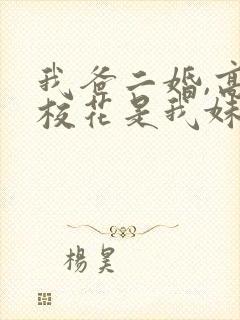 我爸二婚,高
校花是我妹
楊昊